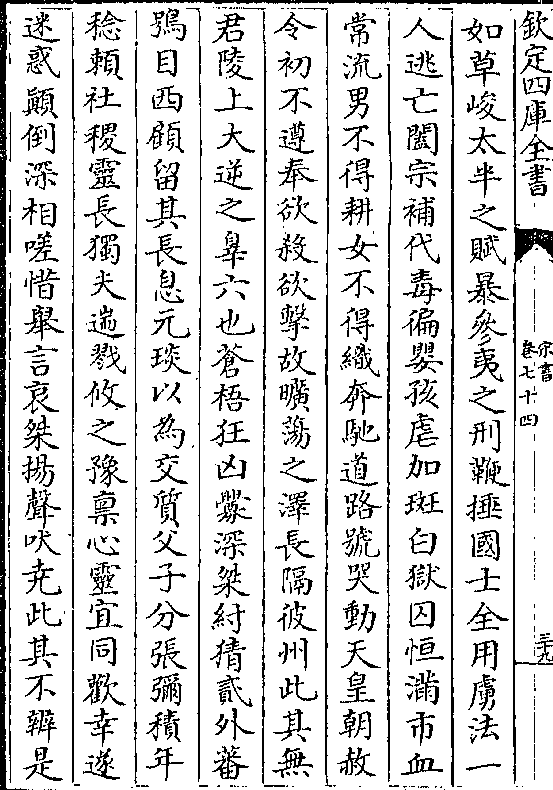 欽定四庫全書
宋書
卷七十四
三十九
如草峻太半之賦暴參夷之刑鞭捶國士全用虜法一
人逃亡闔宗補代毒徧嬰孩虐加斑白獄囚恒滿市血
常流男不得耕女不得織奔馳道路號哭動天皇朝赦
令初不遵奉欲殺欲擊故曠蕩之澤長隔彼州此其無
君陵上大逆之辠六也蒼梧狂凶釁深桀紂猜貳外蕃
鴞目西顧留其長息元琰以為交質父子分張彌積年
稔賴社稷靈長獨夫遄戮攸之豫稟心靈宜同歡幸遂
迷惑顚倒深相嗟惜舉言哀桀揚聲吠尭此其不辨是